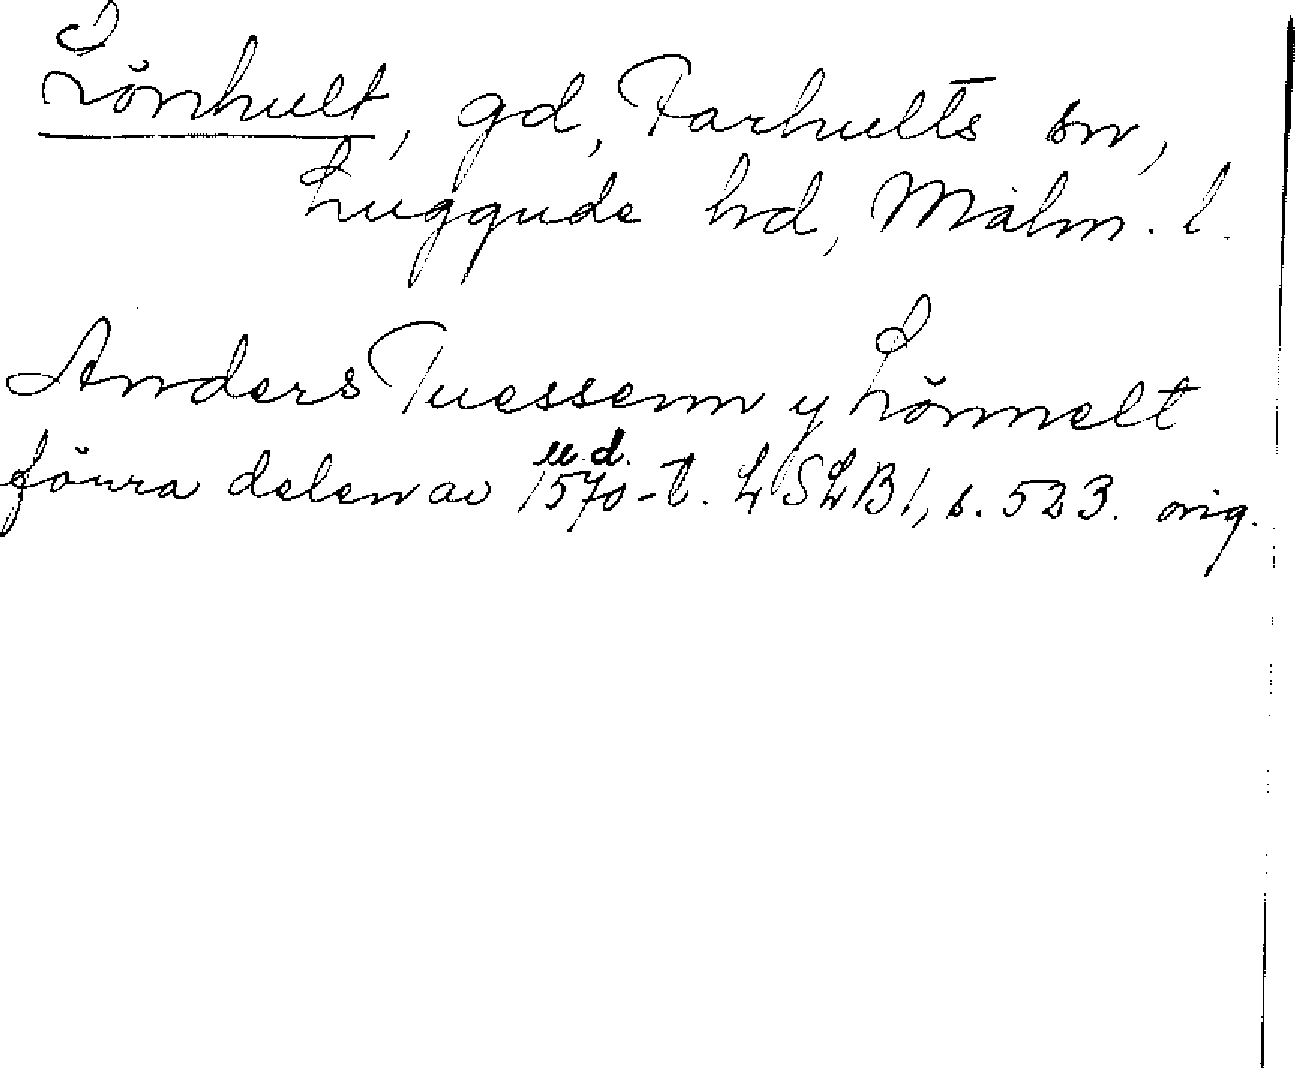 Lönhult, gd, Farhults sn,
Luggude hd, Malm. l.
Anders Tuessenn y Lönnelt
u. d.
förra delen av 1570-t. LSLB 1, s. 523. orig.